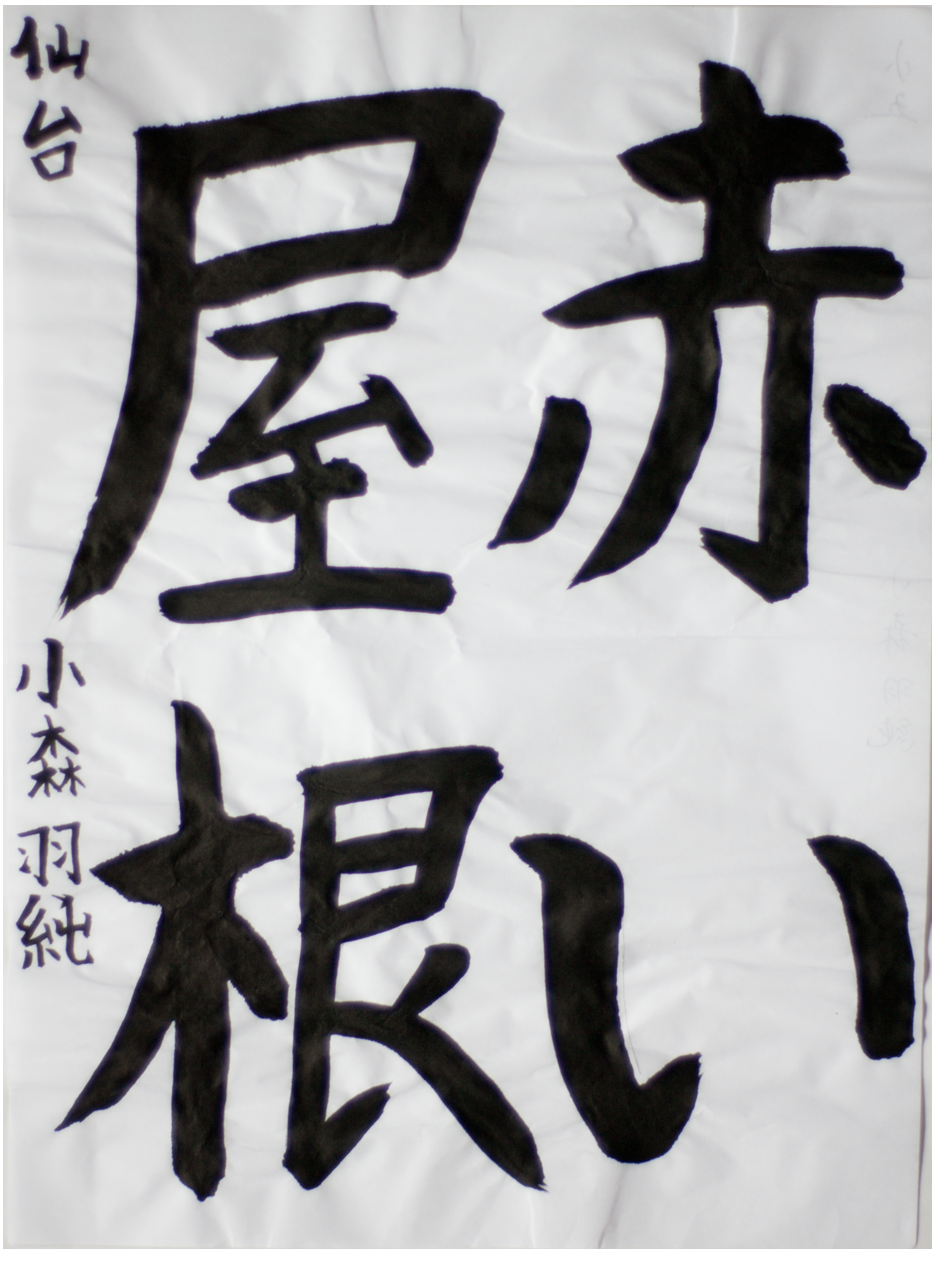 赤い
屋根
仙台 小森羽純